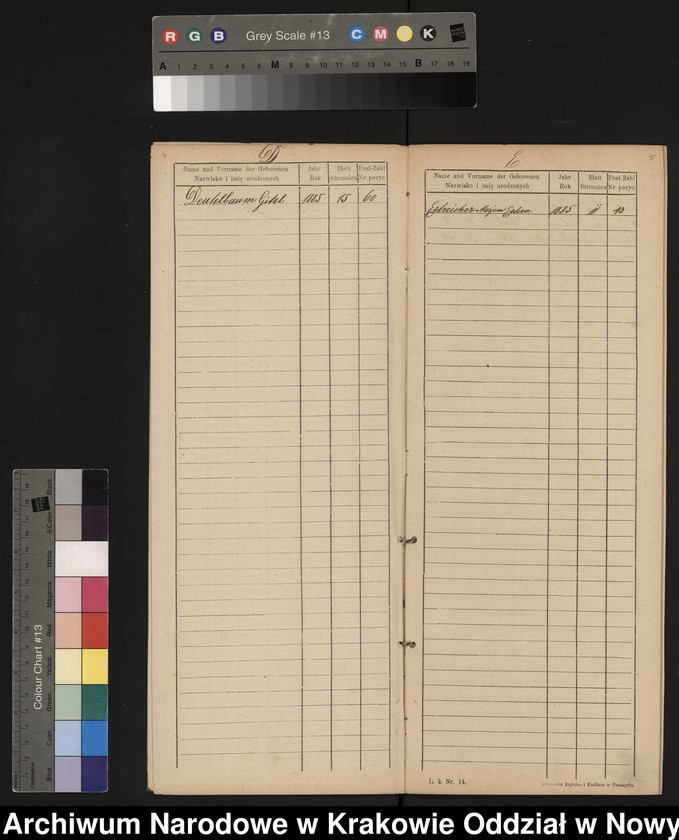 R G B Grey Scale #13 C M Y K
A 1 2 3 4 5 6 M 8 9 10 11 12 13 14 15 B 17 18 19
D
Name und Vorname der Geborenen
Nazwisko i imię urodzonych
Jahr
Rok
Blatt
Post-Zahl
Nr. pozyc.
Deutelbaum Gitel 1885 15 60
E
5
Name und Vorname der Geborenen
Nazwisko i imię urodzonych
Jahr
Rok
Blatt
Stronnica
Post-Zahl
Nr. pozyc.
1885 11 43
L. k. Nr. 14.
w Przemyślu.
Colour Chart #13
Blue Cyan Green Yellow Red Magenta White 3/Color Black
Centimetres
Archiwum Narodowe w Krakowie Oddział w Nowy